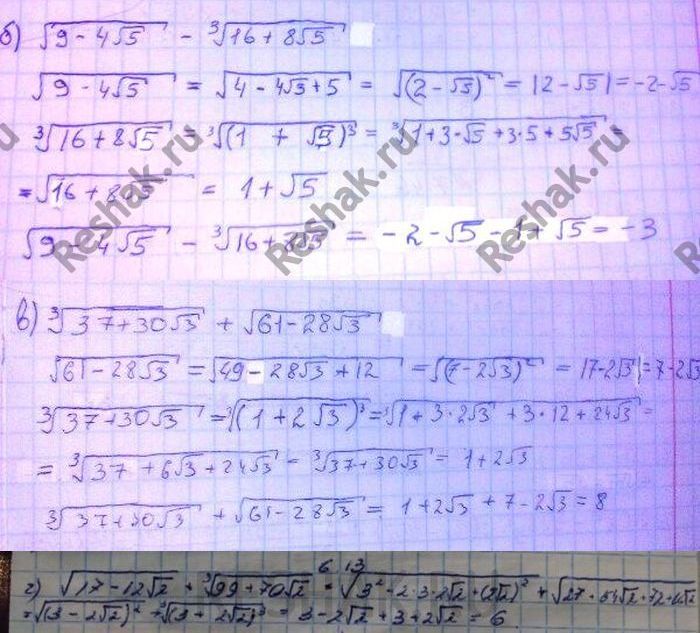 б) √9 - 4√5 - ³√16 + 8√5
√9 - 4√5 = √4 - 4√5 + 5 = √(2 - √5)² = |2 - √5| = -2 - √5
³√16 + 8√5 = ³√(1 + √5)³ = ³√1 + 3·√5 + 3·5 + 5√5 =
= √16 + 8√5 = 1 + √5
√9 - 4√5 - ³√16 + 8√5 = -2 - √5 - 1 + √5 = -3
Reshak.ru
в) ³√37 + 30√3 + √61 - 28√3
√61 - 28√3 = √49 - 28√3 + 12 = √(7 - 2√3)² = |7 - 2√3| = 7 - 2√3
³√37 + 30√3 = ³√(1 + 2√3)³ = ³√1 + 3·2√3 + 3·12 + 24√3 =
= ³√37 + 6√3 + 24√3 = ³√37 + 30√3 = 1 + 2√3
³√37 + 30√3 + √61 - 28√3 = 1 + 2√3 + 7 - 2√3 = 8
6 13
г) √17 - 12√2 + ³√99 + 70√2 = √3² - 2·3·2√2 + (2√2)² + √27 + 54√2 + 72
= √(3 - 2√2)² + ³√(3 + 2√2)³ = 3 - 2√2 + 3 + 2√2 = 6